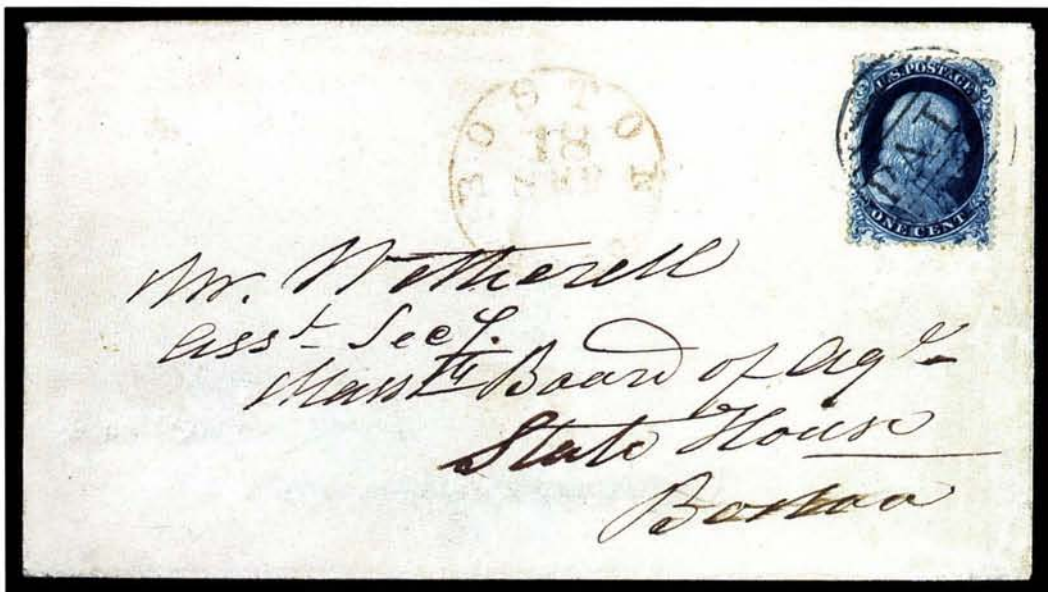 BOSTON
18
SEP
U.S. POSTAGE
PAID
ONE CENT
Mr. Wetherell
Asst. Secy.
Masstts Board of Agre
State House
Boston